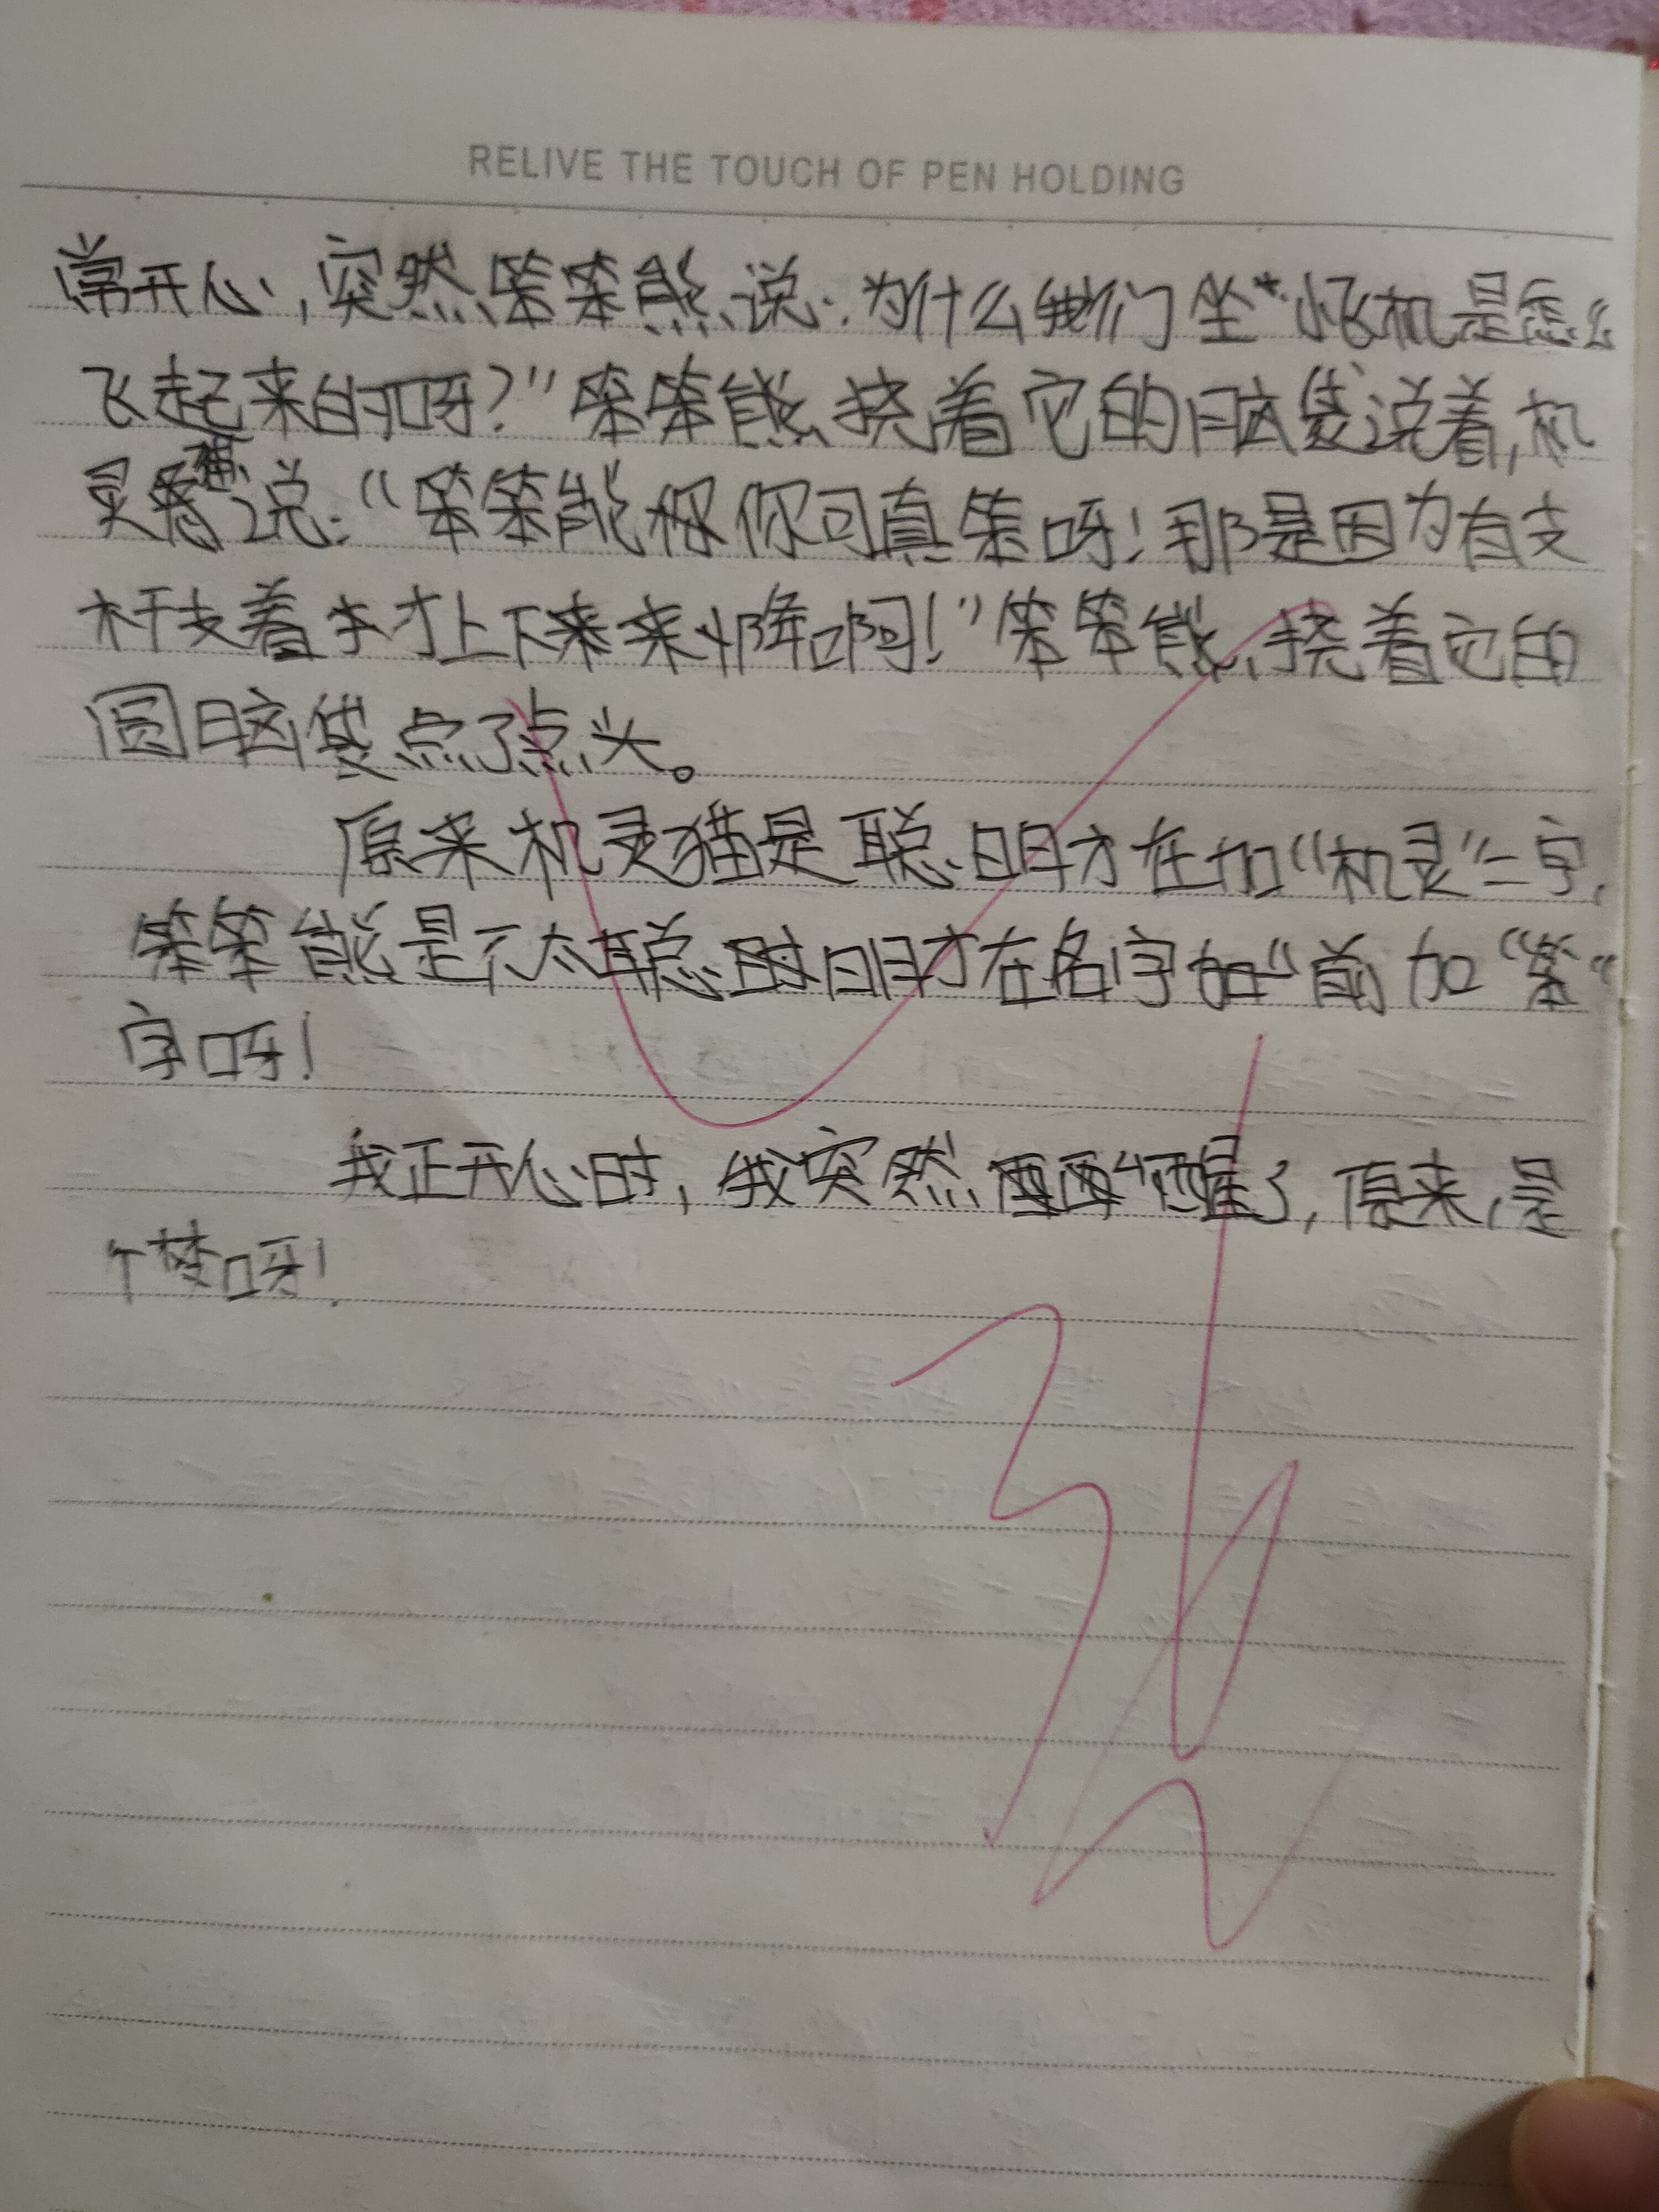 RELIVE THE TOUCH OF PEN HOLDING
常开心，突然笨笨熊说：为什么我们坐小飞机是怎么
飞起来的呀？”笨笨熊挠着它的脑袋说着，机
灵猫说：“笨笨熊你可真笨呀！那是因为有支
杆支着才上下来来降啊！”笨笨熊挠着它的
圆脑袋点了点头。
原来机灵猫是聪明才在加“机灵”二字，
笨笨熊是不太聪明才在名字前加“笨“
字呀！
我正开心时，我突然醒了，原来，是
个梦呀！